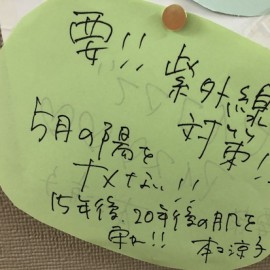 要!! 紫外線
対策!!
5月の陽を
ナメない!!
15年後、20年後の肌を
守れ!! 本口涼子